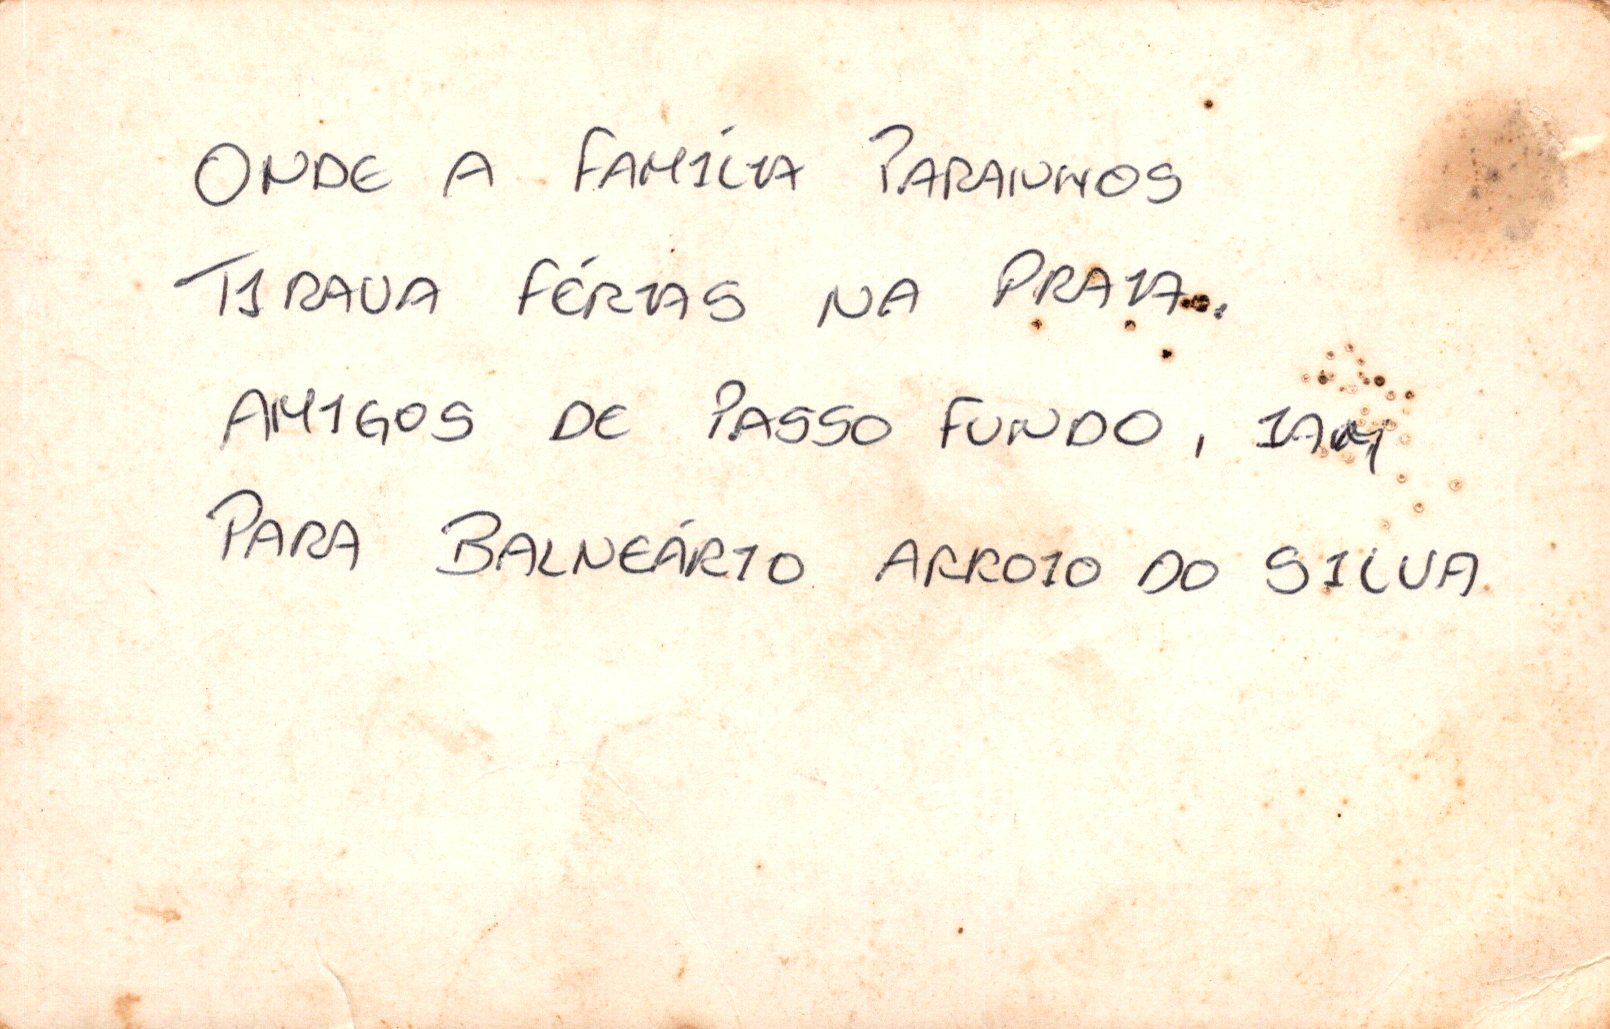 ONDE A FAMÍLIA PARANHOS
TIRAVA FÉRIAS NA PRAIA.
AMIGOS DE PASSO FUNDO, IAM
PARA BALNEÁRIO ARROIO DO SILVA